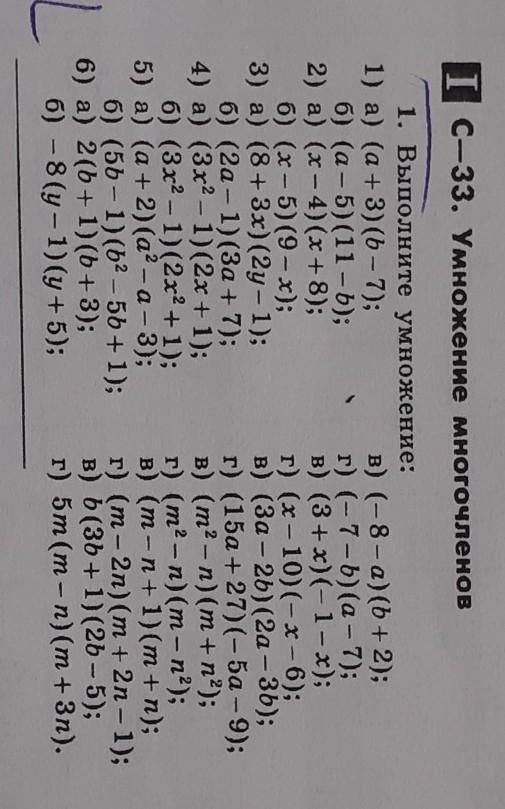 I С—33. Умножение многочленов
1. Выполните умножение:
1) а) (a + 3)(b − 7); в) (− 8 − a)(b + 2);
б) (a − 5)(11 − b); г) (− 7 − b)(a − 7);
2) а) (x − 4)(x + 8); в) (3 + x)(− 1 − x);
б) (x − 5)(9 − x); г) (x − 10)(− x − 6);
3) а) (8 + 3x)(2y − 1); в) (3a − 2b)(2a − 3b);
б) (2a − 1)(3a + 7); г) (15a + 27)(− 5a − 9);
4) а) (3x² − 1)(2x + 1); в) (m² − n)(m + n²);
б) (3x² − 1)(2x² + 1); г) (m² − n)(m − n²);
5) а) (a + 2)(a² − a − 3); в) (m − n + 1)(m + n);
б) (5b − 1)(b² − 5b + 1); г) (m − 2n)(m + 2n − 1);
6) а) 2(b + 1)(b + 3); в) b(3b + 1)(2b − 5);
б) − 8(y − 1)(y + 5); г) 5m(m − n)(m + 3n).